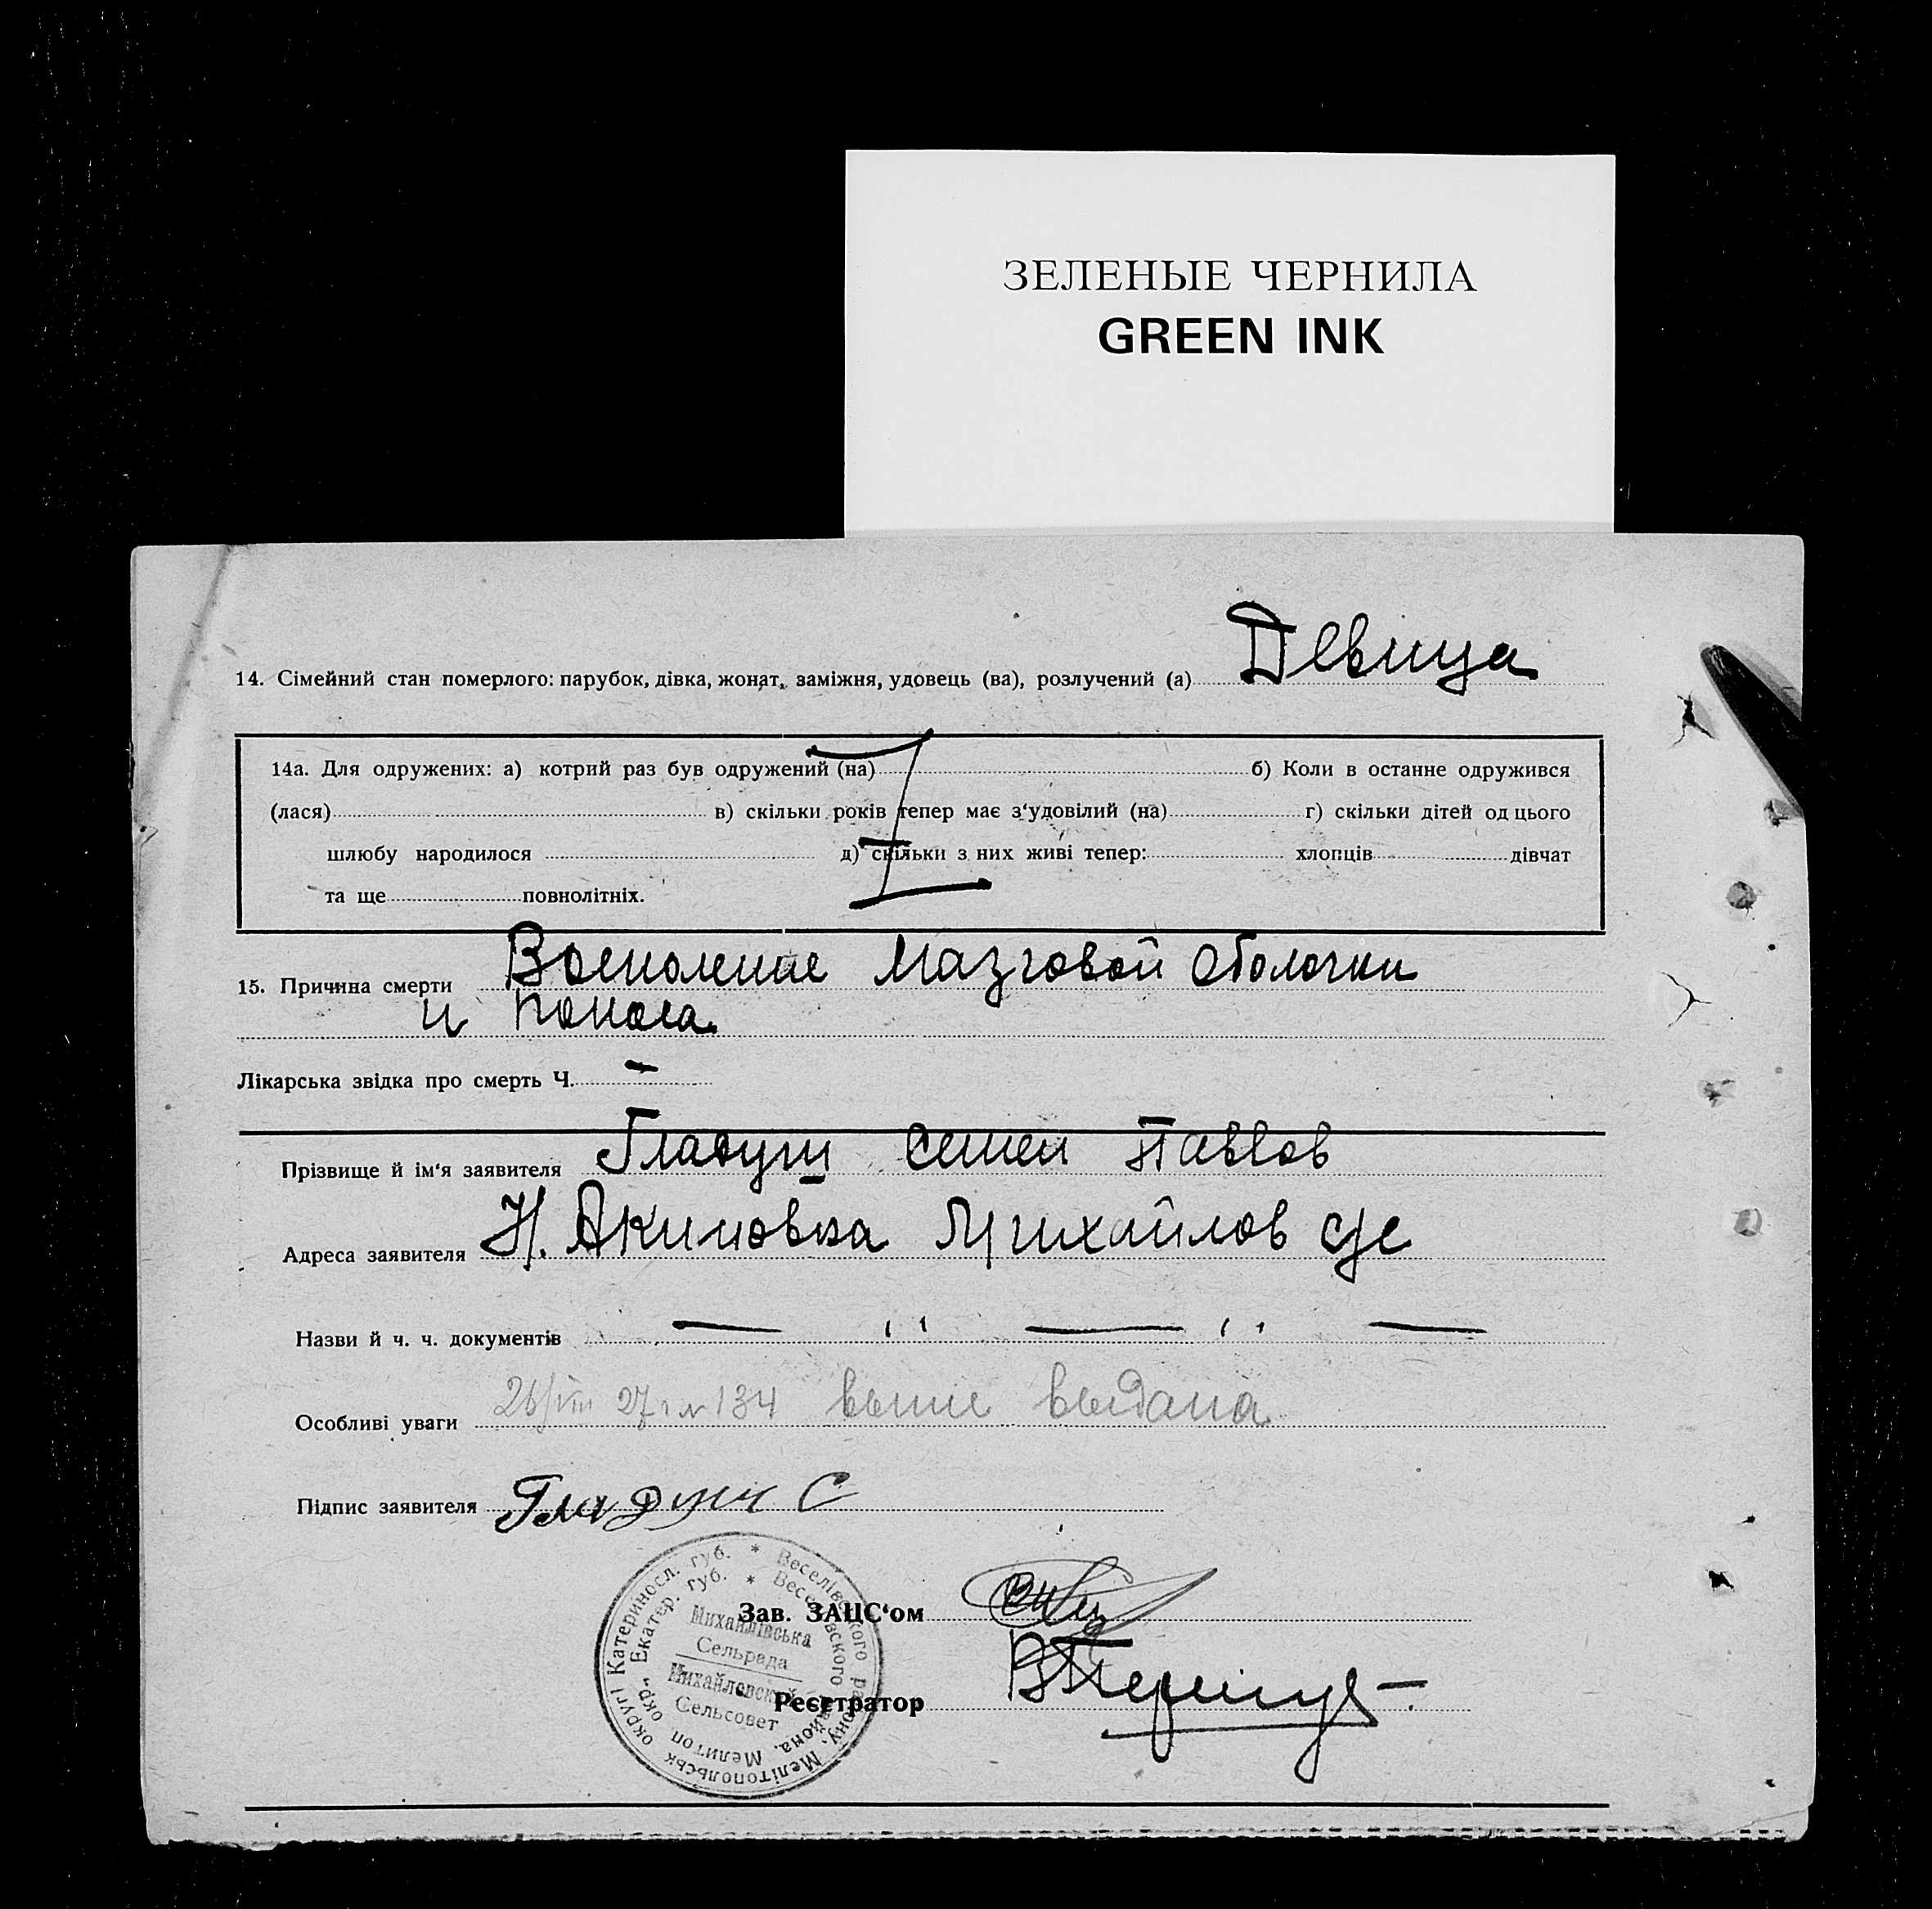 ЗЕЛЕНЫЕ ЧЕРНИЛА
GREEN INK
14. Сімейний стан померлого: парубок, дівка, жонат, заміжня, удовець (ва), розлучений (а) Девица
14а. Для одружених: а) котрий раз був одружений (на) б) Коли в останне одружився
(лася) в) скільки років тепер має з‘удовілий (на) г) скільки дітей од цього
шлюбу народилося д) скільки з них живі тепер: хлопців дівчат
та ще повнолітніх.
15. Причина смерти Восполение Мазговой оболочки
и поноса
Лікарська звідка про смерть Ч. —
Прізвище й ім‘я заявителя Гладуш Семен Павлов
Адреса заявителя Н. Акимовка Михайлов с/с
Назви й ч. ч. документів — „ — „ —
Особливі уваги 26/VIII 27 г № 134 выдана
Підпис заявителя Гладуш С
Зав. ЗАЦС‘ом
Реєстратор
* Веселівського району, Мелітопольськ округі Катериносл. губ.
* Веселовского района, Мелитоп окр., Екатер. губ.
Михайлівська
Сельрада
Михайловский
Сельсовет